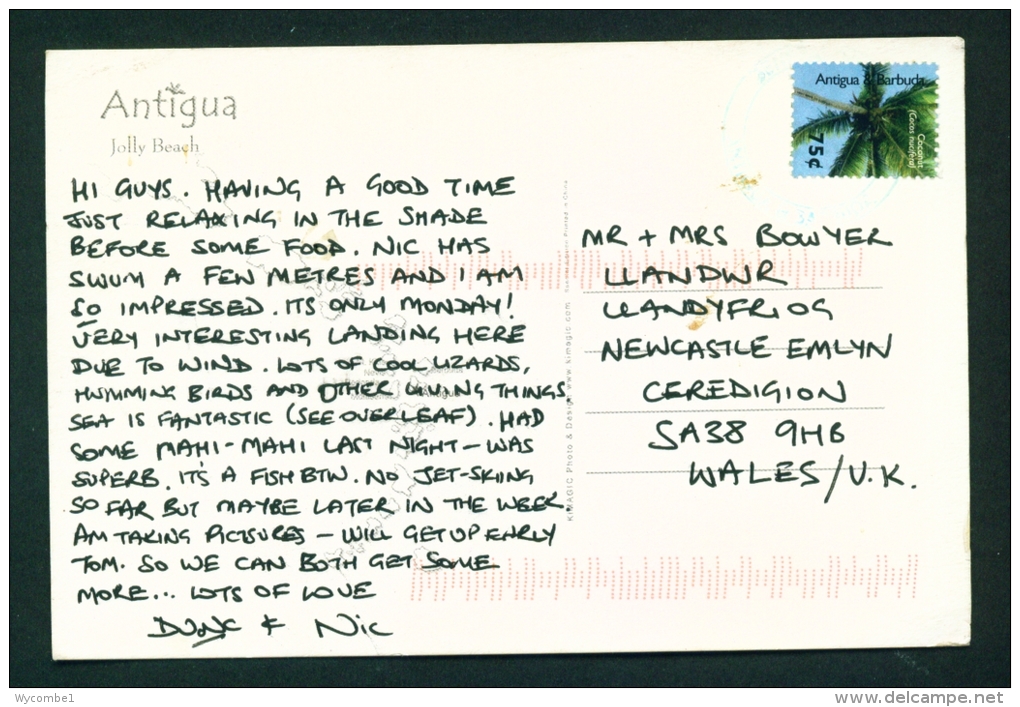 Antigua
Jolly Beach
Antigua & Barbuda
Coconut
(Cocos nucifera)
75¢
HI GUYS. HAVING A GOOD TIME
JUST RELAXING IN THE SHADE
BEFORE SOME FOOD. NIC HAS
SWUM A FEW METRES AND I AM
SO IMPRESSED. ITS ONLY MONDAY!
VERY INTERESTING LANDING HERE
DUE TO WIND. LOTS OF COOL LIZARDS,
HUMMING BIRDS AND OTHER LIVING THINGS
SEA IS FANTASTIC (SEE OVERLEAF). HAD
SOME MAHI-MAHI LAST NIGHT - WAS
SUPERB. IT'S A FISH BTW. NO JET-SKIING
SO FAR BUT MAYBE LATER IN THE WEEK
AM TAKING PICTURES - WILL GET UP EARLY
TOM. SO WE CAN BOTH GET SOME
MORE... LOTS OF LOVE
DUNC & NIC
Antigua
KIMAGIC Photo & Design www.kimagic.com
Printed in China
MR + MRS BOWYER
LLANDWR
LLANDYFRIOG
NEWCASTLE EMLYN
CEREDIGION
SA38 9HB
WALES/U.K.
Wycombe1
www.delcampe.net